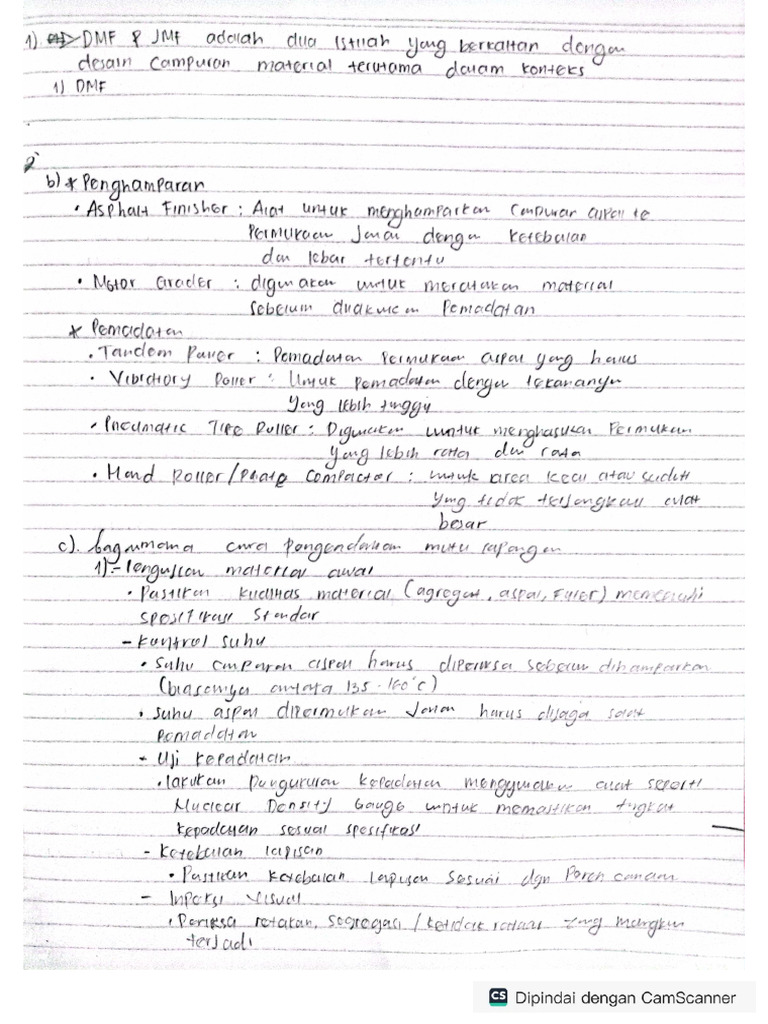 1) DMF & JMF adalah dua istilah yang berkaitan dengan
desain campuran material terutama dalam konteks
1) DMF
2
b) * Penghamparan
• Asphalt Finisher : Alat untuk menghamparkan campuran aspal ke
Permukaan Jalan dengan ketebalan
dan lebar tertentu
• Motor Grader : digunakan untuk meratakan material
sebelum dilakukan Pemadatan
* Pemadatan
• Tandem Roller : Pemadatan Permukaan aspal yang halus
• Vibratory Roller : Untuk Pemadatan dengan tekananya
yang lebih tinggi
• Pneumatic Tire Roller : Digunakan untuk menghasilkan Permukaan
yang lebih rata dan rata
• Hand Roller/Plate Compactor : untuk area kecil atau sudut
yang tidak terjangkau alat
besar
c). bagaimana cara pengendalian mutu lapangan
1) - Pengujian material awal
• Pastikan kualitas material (agregat, aspal, Filler) memenuhi
spesifikasi standar
- Kontrol suhu
• Suhu campuran aspal harus diperiksa sebelum dihamparkan
(biasanya antara 135-160°C)
• Suhu aspal dipermukaan Jalan harus dijaga saat
Pemadatan
- Uji kepadatan
• lakukan Pengukuran kepadatan menggunakan alat seperti
Nuclear Density Gauge untuk memastikan tingkat
kepadatan sesuai spesifikasi
- Ketebalan lapisan
• Pastikan ketebalan lapisan sesuai dgn
- Inpeksi Visual
• Periksa retakan, segregasi / ketidak rataan yang mungkin
terjadi
CS Dipindai dengan CamScanner